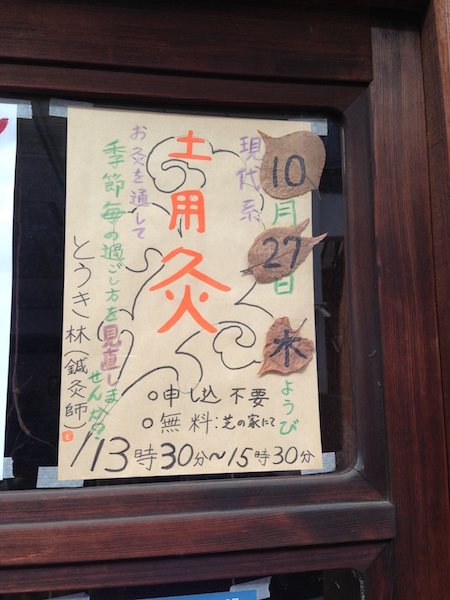 10月27日木ようび
現代系
土用灸
お灸を通して
季節毎の過ごし方を見直しませんか?
とうき林(鍼灸師)
○申し込 不要
○無料:芝の家にて
13時30分〜15時30分